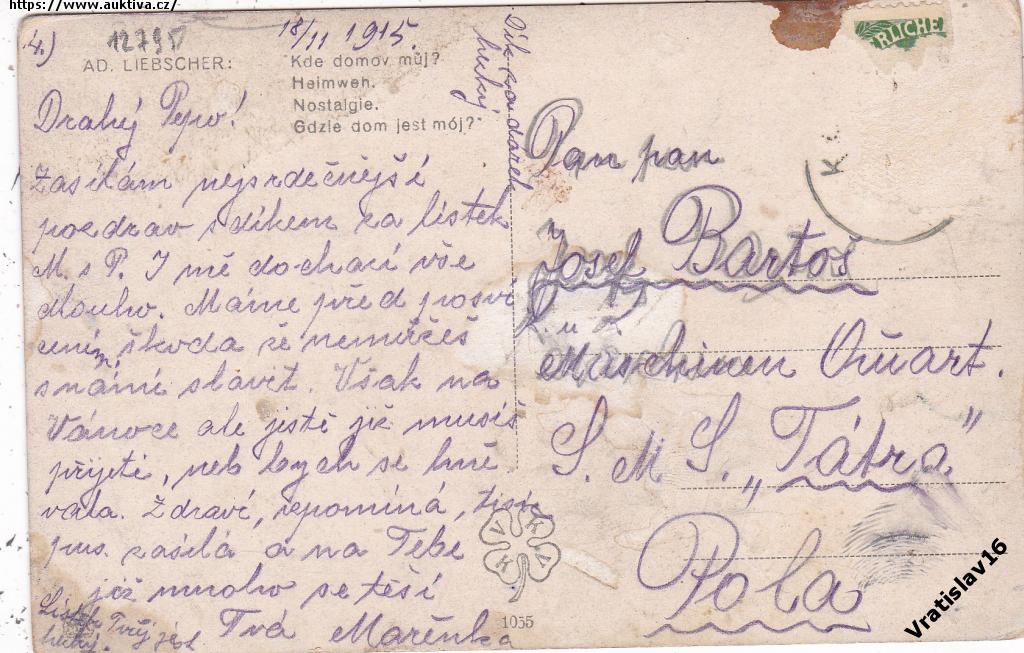 https://www.auktiva.cz/
4.)
12795
18/11 1915.
AD. LIEBSCHER:
"Kde domov můj?
Heimweh.
Nostalgie.
Gdzie dom jest mój?"
Drahý Pepo!
Zasílám nejsrdečnější
pozdrav s díkem za lístek
M. s P. I mě dochází vše
dlouho. Máme před posví
cením škoda že nemůžeš
s námi slavit. Však na
Vánoce ale jistě již musíš
přijeti, neb bych se hně
vala. Zdraví, vzpomíná,
pus. zasílá a na Tebe
již mnoho se těší
Tvá Mařenka
Lístek Tvůj
hezký.
Dík za dárek
hezký
Pan pan
Josef Bartoš
k. u. k.
Maschinen Quart.
S. M. S. „Tátra"
Pola
RLICHE
K
K V K V
1035
Vratislav16